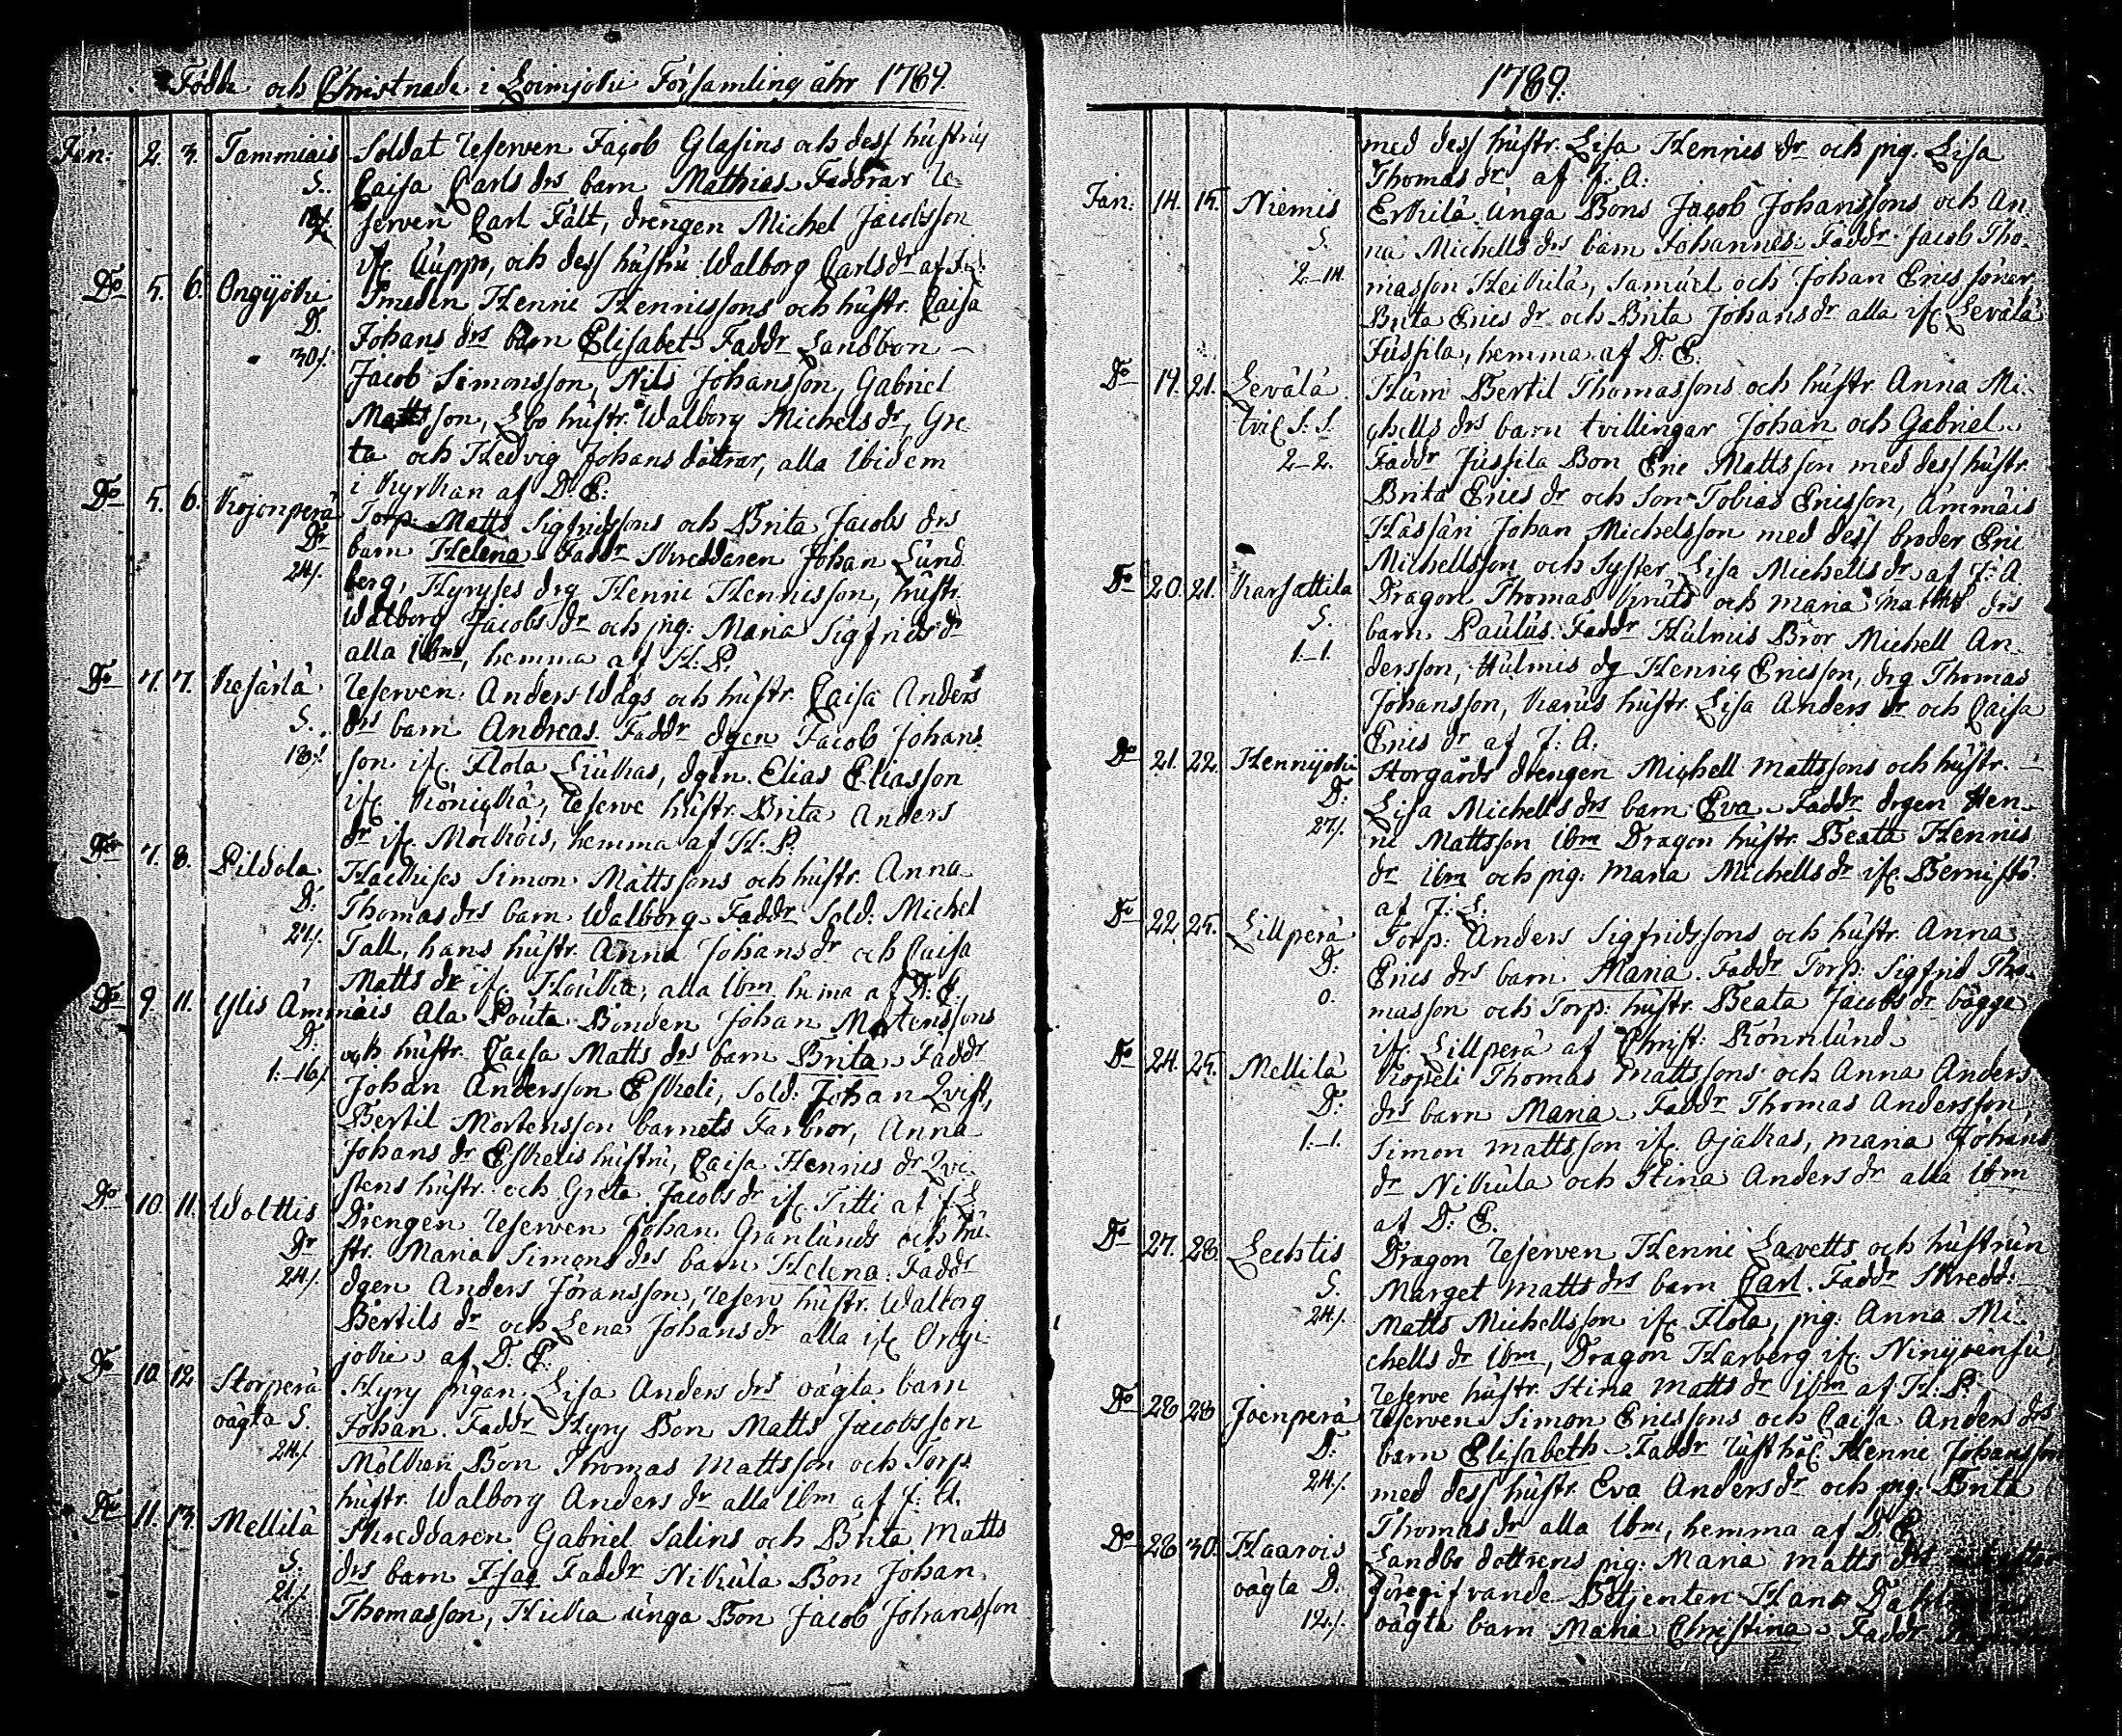 Födde och Christnade i Loimjoki Församling åhr 1789.
Jan: 2. 3. Tammiais Soldat Reserven Jacob Glasins och dess hustrus
S. Caisa Carls drs barn Mathias Faddrar Re-
18/. serven Carl Fält, drengen Michel Jacobsson
ifr. Uuppo, och dess hustru Walborg Carls dr af
Do 5. 6. Orisjoki Smeden Henric Henricssons och hustr. Caisa
D. Johans drs barn Elisabet Faddr Landbon –
30/. Jacob Simonsson, Nils Johansson, Gabriel
Mattsson, Lbo hustr. Walborg Michels dr, Gre-
ta och Hedvig Johans döttrar, alla ibidem
i Kyrkan af D. E:
Do 5. 6. Kojonperä Torp. Matts Sigfridssons och Brita Jacobs drs
Dr barn Helena Faddr Skreddaren Johan Lund
24/. berg, Hyryses drg Henric Henricsson, hustr.
Walborg Jacobs dr och pig: Maria Sigfrids dr
alla ibm, hemma af H: P.
Do 7. 7. Kesärlä Reserven Anders Wägs och hustr. Caisa Anders
S. drs barn Andreas. Faddr dgen Jacob Johans
18/. son ifr. Hola Liukas, dgen. Elias Eliasson
ifr. Könickä, Reserve hustr. Brita Anders
dr ifr. Morkois, hemma af H: P.
Do 7. 8. Pildola Simon Mattssons och hustr. Anna
D: Thomas drs barn Walborg Faddr Sold: Michel
27/. Tall, hans hustr. Anna Johans dr och Caisa
Matts dr ifr. alla ibm hema af D: E:
Do 9. 11. Ylis Ämmäis Ala Pouta Bonden Johan Mortenssons
D: och hustr. Caisa Matts drs barn Brita Faddr
1.–16/. Johan Andersson Eskeli, Sold: Johan Qvist,
Bertil Mortensson barnets Farbror, Anna
Johans dr Eskelis hustru, Caisa Henrics dr Qvi-
stens hustr. och Greta Jacobs dr ifr. Titti af J: L
Do 10. 11. Wolttis Drengen Reserven Johan Granlunds och hu-
Dr str. Maria Simons drs barn Helena. Faddr
24/. dgen Anders Göransson, Reserv hustr. Walborg
Bertils dr och Lena Johans dr alla ifr. Orisi-
joki af D. E:
Do 10. 12 Storperä Hyry pigan Lisa Anders drs oägta barn
oägta S. Johan. Faddr Hyry Bon Matts Jacobsson
24/. Mälkän Bon Thomas Mattsson och Torp.
hustr. Walborg Anders dr alla ibm af J: A.
Do 11. 13. Mellilä Skreddaren Gabriel Salins och Brita Matts
S. drs barn Isac Faddr Nikula Bon Johan
21/. Thomasson, Hickia unga Bon Jacob Johansson
1789.
med dess hustr. Lisa Henrics dr och pig. Lisa
Thomas dr af J: A:
Jan: 14. 15. Niemis Erkkilä unga Bons Jacob Johanssons och An-
S. na Michells drs barn Johannes. Faddr Jacob Tho-
2.–14. masson Heikkilä, Samuel och Johan Ericssöner,
Brita Erics dr och Brita Johans dr alla ifr. Levälä
Jussila, hemma af D. E.
Do 14. 21. Levälä Bertil Thomassons och hustr. Anna Mi-
tvil S: S. chells drs barn tvillingar Johan och Gabriel.
2–2. Faddr Jussila Bon Eric Mattsson med dess hustr.
Brita Erics dr och Son Tobias Ericsson, Ämmäis
Hassari Johan Michelsson med dess broder Eric
Michellsson och Syster Lisa Michells dr af J: A.
Do 20. 21. Karsattila Dragon Thomas Knuts och Maria Matts drs
S. barn Paulus. Faddr Hulmis Bror Michell An-
1.–1. dersson, Hulmis dg Henric Ericsson, drg Thomas
Johansson, Karus hustr. Lisa Anders dr och Caisa
Erics dr af J: A.
Do 21. 22. Hennijoki Storgårds drengen Michell Mattssons och hustr. –
D: Lisa Michells drs barn Eva. Faddr drgen Hen-
27/. ric Mattsson ibm Dragon hustr. Beata Henrics
dr ibm och pig: Maria Michells dr ifr. Pernistö.
af J: L.
Do 22. 25. Lillperä Torp: Anders Sigfridssons och hustr. Anna
D: Erics drs barn Maria. Faddr Torp: Sigfrid Tho-
0. masson och Torp: hustr. Beata Jacobs dr bägge
ifr. Lillperä af Christ: Rönnlund.
Do 24. 25. Mellilä Kopeli Thomas Mattssons och Anna Anders
D: drs barn Maria. Faddr Thomas Andersson,
1.–1. Simon Mattsson ifr. Ojakas, Maria Johans
dr Nikula och Stina Anders dr alla ibm
af D: E.
Do 27. 28. Lechtis Dragon Reserven Henric Lavetts och hustrun
S. Marget Matts drs barn Carl. Faddr Skredd: –
24/. Matts Michellsson ifr. Hola, pig: Anna Mi-
chells dr ibm, Dragon Harberg ifr. Ninijoensu,
Reserve hustr. Stina Matts dr ibm af H: P.
Do 28 28 Joenperä Reserven Simon Ericssons och Caisa Anders drs
D: barn Elisabeth Faddr Rusthål. Henric Johansson
24/. med dess hustr. Eva Anders dr och pig: Brita
Thomas dr alla ibm, hemma af D. E.
Do 28 30. Haarois Landbo dottrens pig: Maria Matts drs
oägta D. föregifvande Betjenten Hans
12/. oägta barn Maria Christina. Faddr